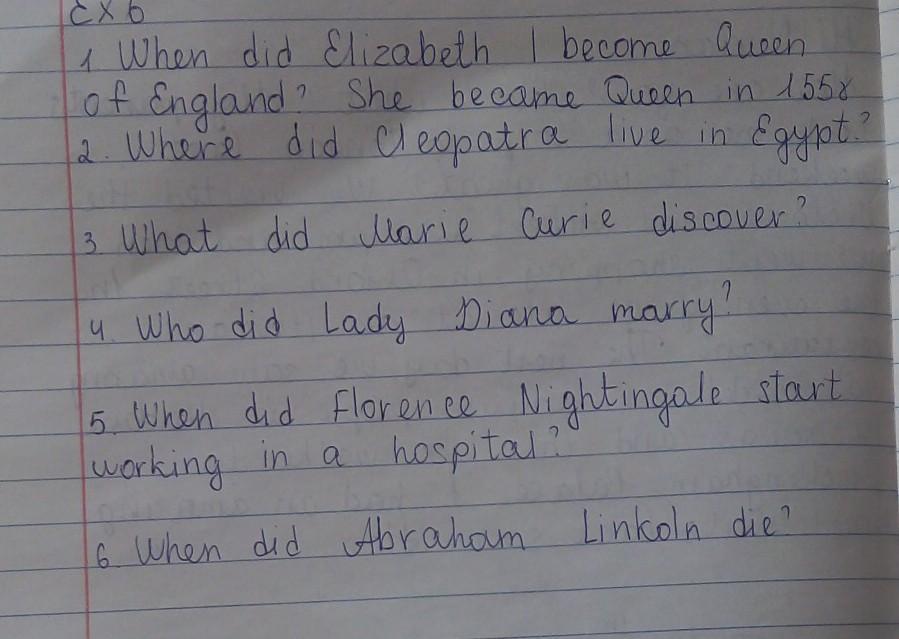 Ex 6
1 When did Elizabeth I become Queen
of England? She became Queen in 1558
2. Where did Cleopatra live in Egypt?
3. What did Marie Curie discover?
4. Who did Lady Diana marry?
5. When did Florence Nightingale start
working in a hospital?
6. When did Abraham Linkoln die?